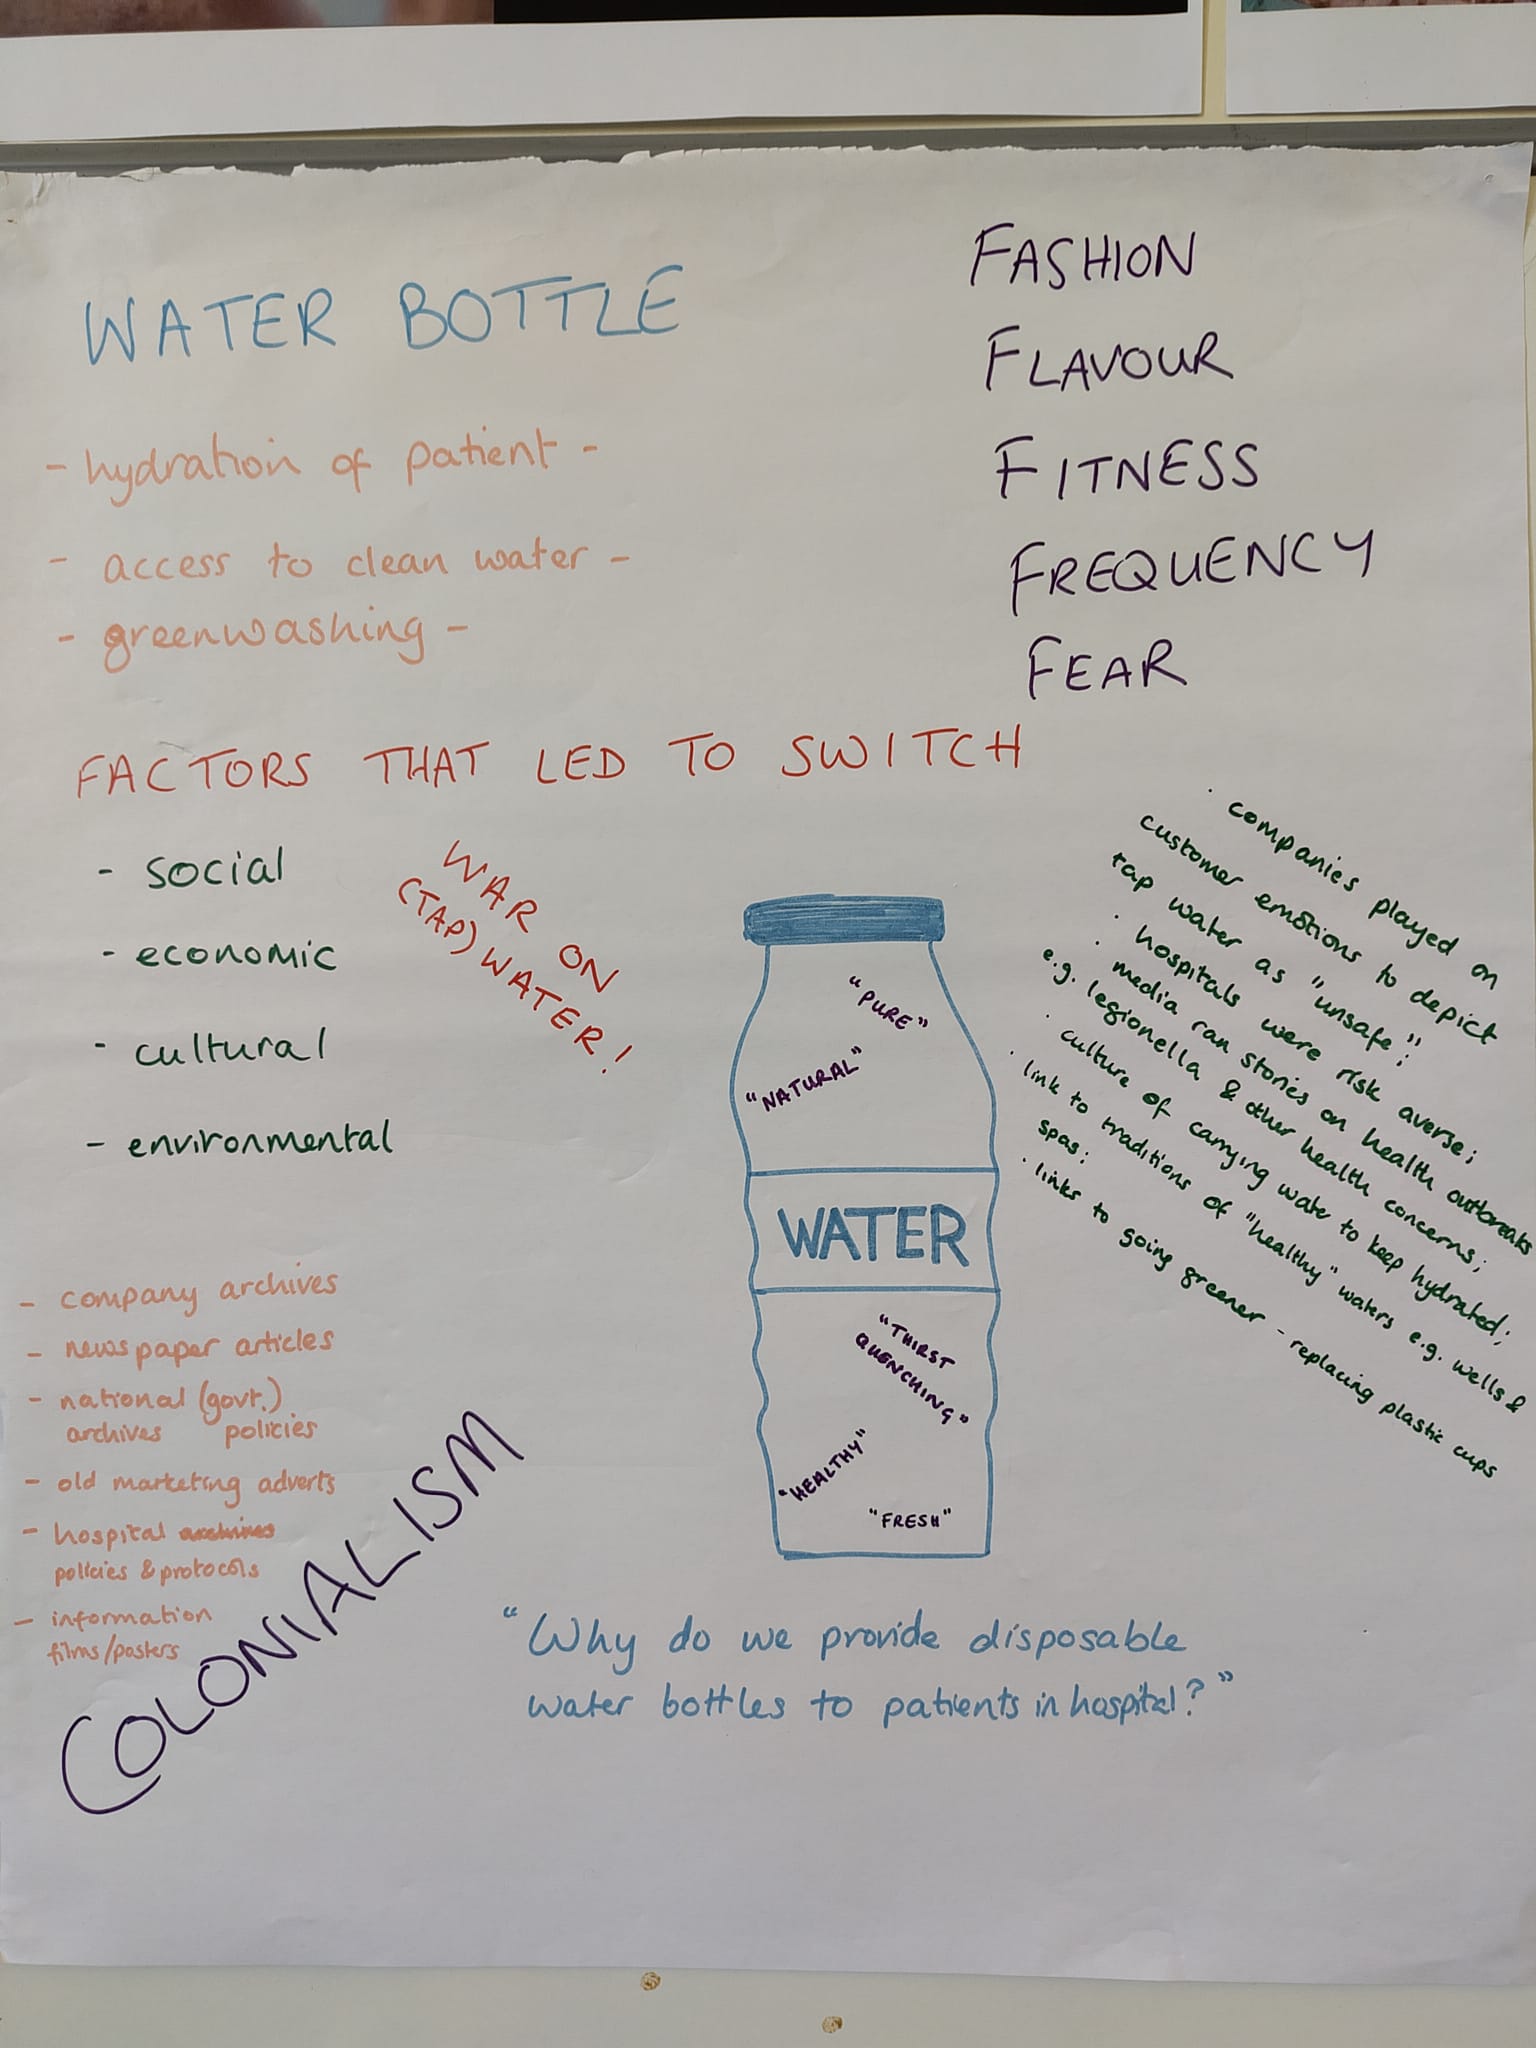 WATER BOTTLE
- hydration of patient -
- access to clean water -
- greenwashing -
FASHION
FLAVOUR
FITNESS
FREQUENCY
FEAR
FACTORS THAT LED TO SWITCH
- social
- economic
- cultural
- environmental
WAR ON
(TAP) WATER!
"PURE"
"NATURAL"
WATER
"THIRST
QUENCHING"
"HEALTHY"
"FRESH"
· companies played on
customer emotions to depict
tap water as "unsafe";
· hospitals were risk averse;
· media ran stories on health outbreaks
e.g. legionella & other health concerns;
· culture of carrying water to keep hydrated;
· link to traditions of "healthy" waters e.g. wells &
spas;
· links to going greener - replacing plastic cups
- company archives
- newspaper articles
- national (govt.)
archives policies
- old marketing adverts
- hospital archives
policies & protocols
- information
films/posters
COLONIALISM
"Why do we provide disposable
water bottles to patients in hospital?"